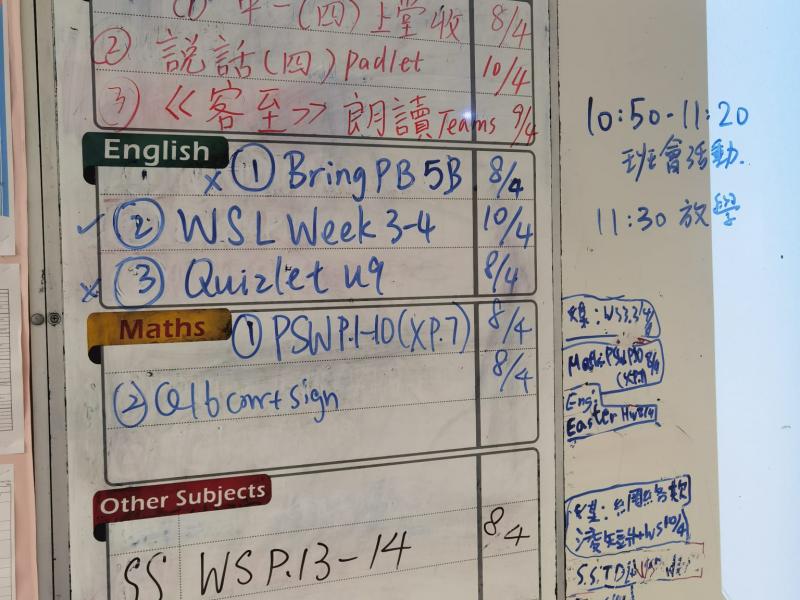 (四)上堂收 8/4
② 説話(四) padlet 10/4
③ 《客至》朗讀 Teams 9/4
English
x ① Bring PB 5B 8/4
✓ ② WSL Week 3-4 10/4
x ③ Quizlet u9 8/4
Maths
① PSW P.1-10 (X P.7) 8/4
② Q16 corr + sign 8/4
Other Subjects
SS WS P.13-14 8/4
10:50-11:20
班會活動.
11:30 放學
(X P.7)
Eng:
Easter Hw 8/4